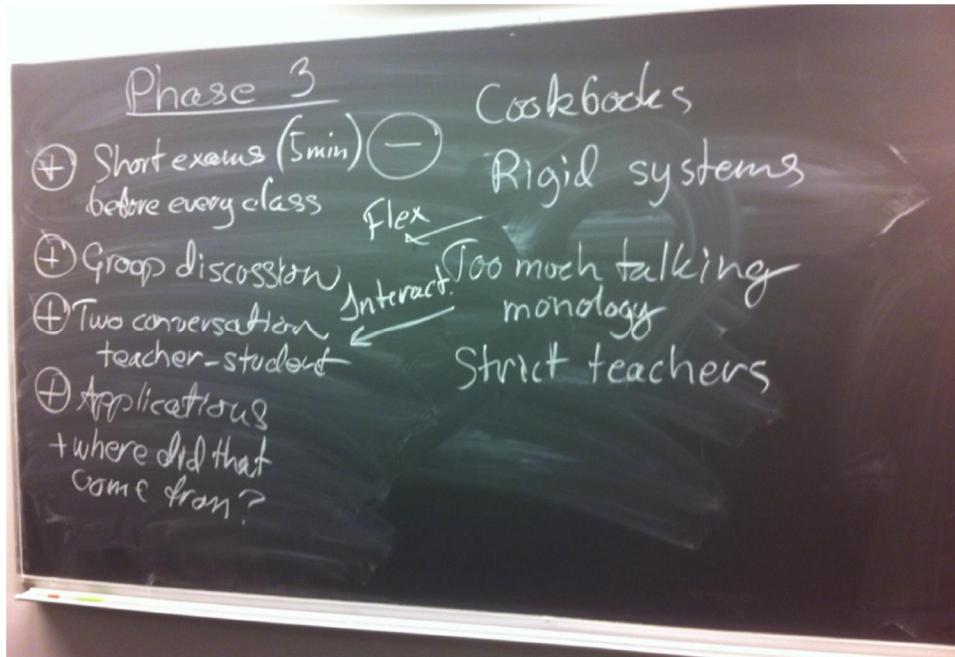 Phase 3
+ Short exams (5min)
before every class
+ Groop discossion
+ Two conversation
teacher-student
+ Applications
+ where did that
come from?
−
Cookbooks
Rigid systems
Flex
Too moch talking
monology
Interact.
Strict teachers